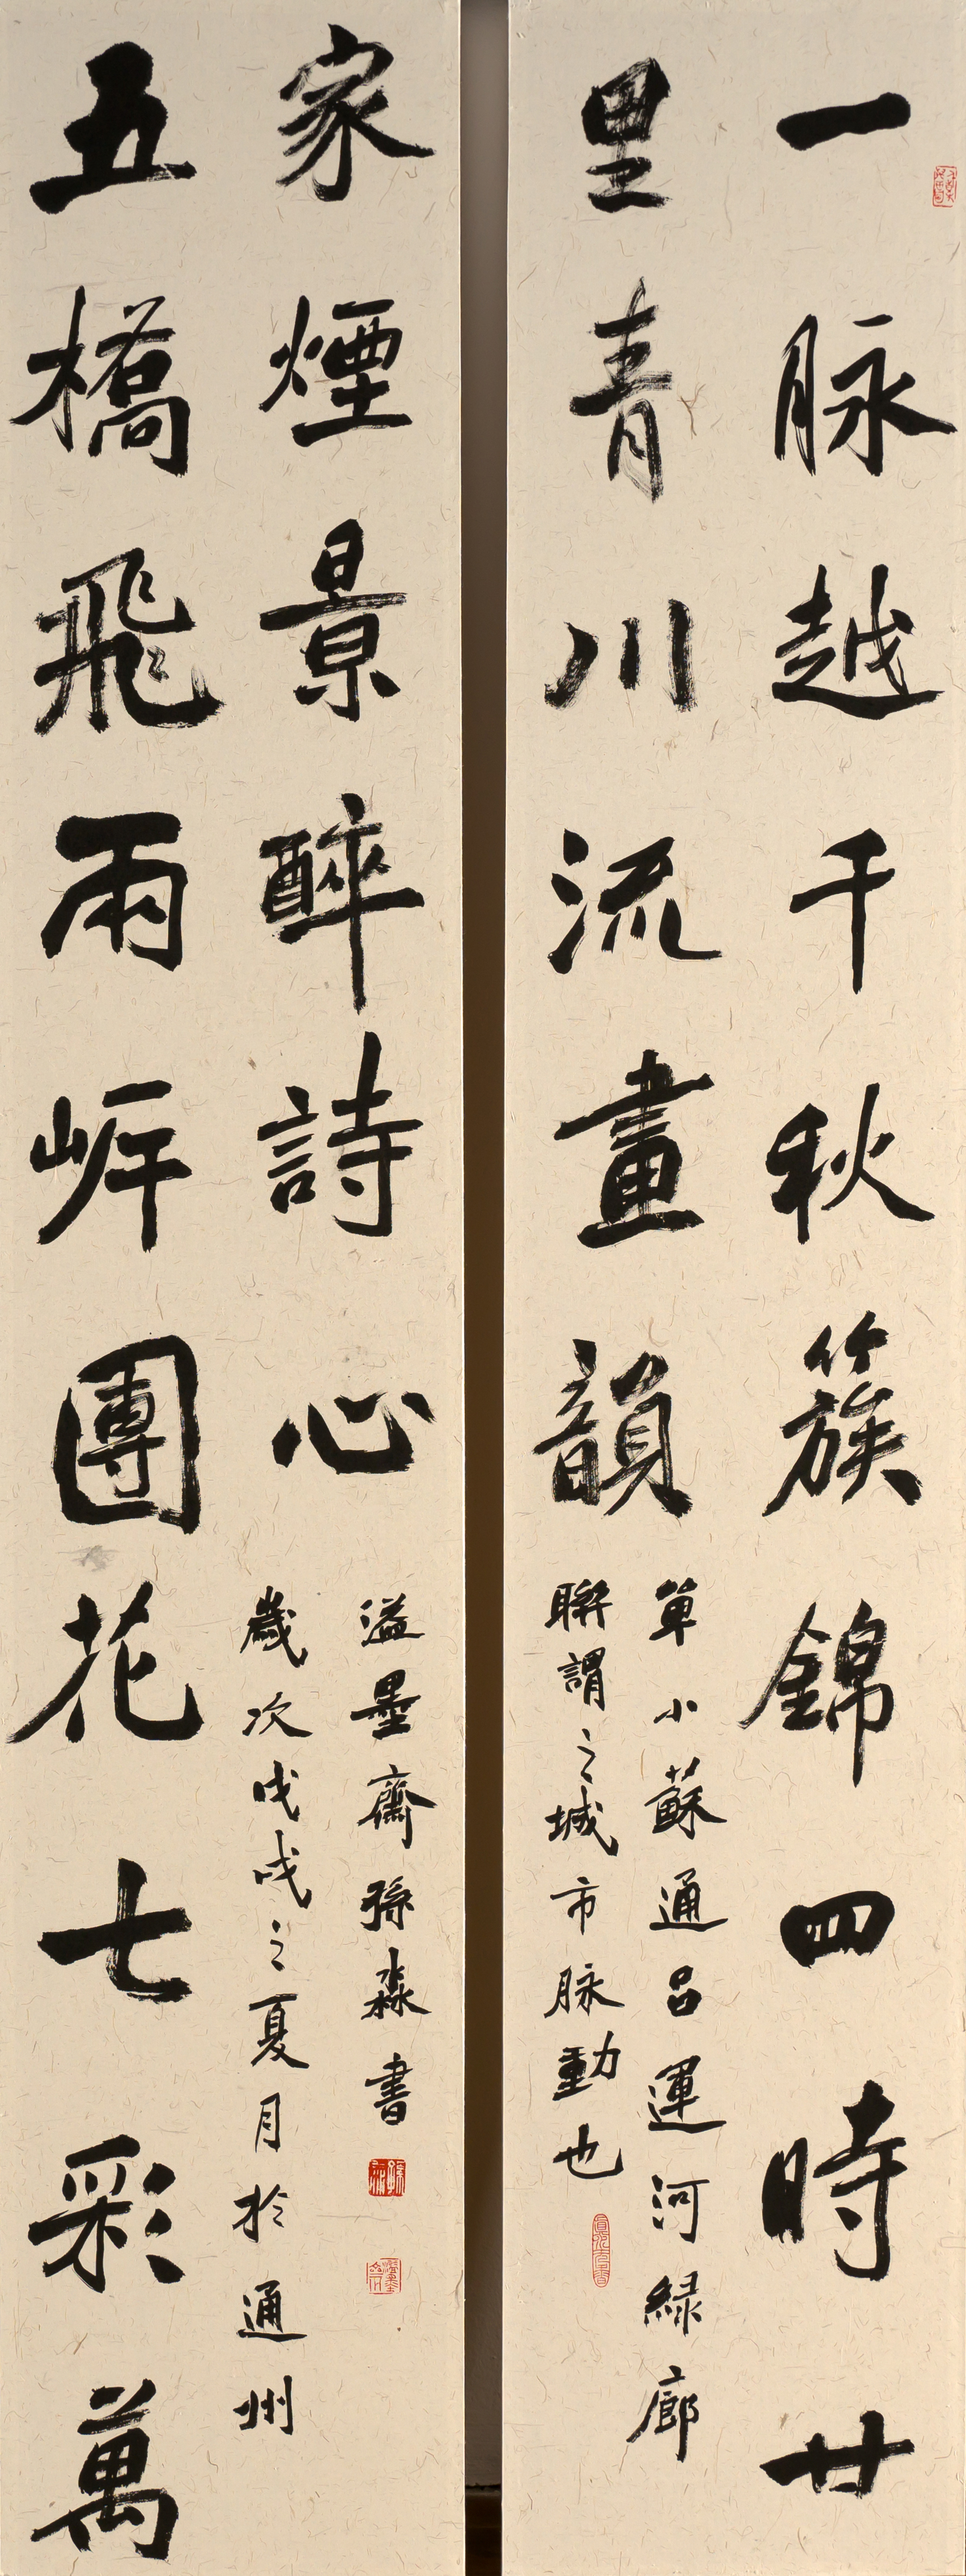 一脉越千秋簇錦四時廿
里青川流畫韻
單小蘇通吕運河緑廊
聯謂之城市脉動也
五橋飛兩岸團花七彩萬
家煙景醉詩心
歲次戊戌之夏月於通州
溢墨齋孫淼書